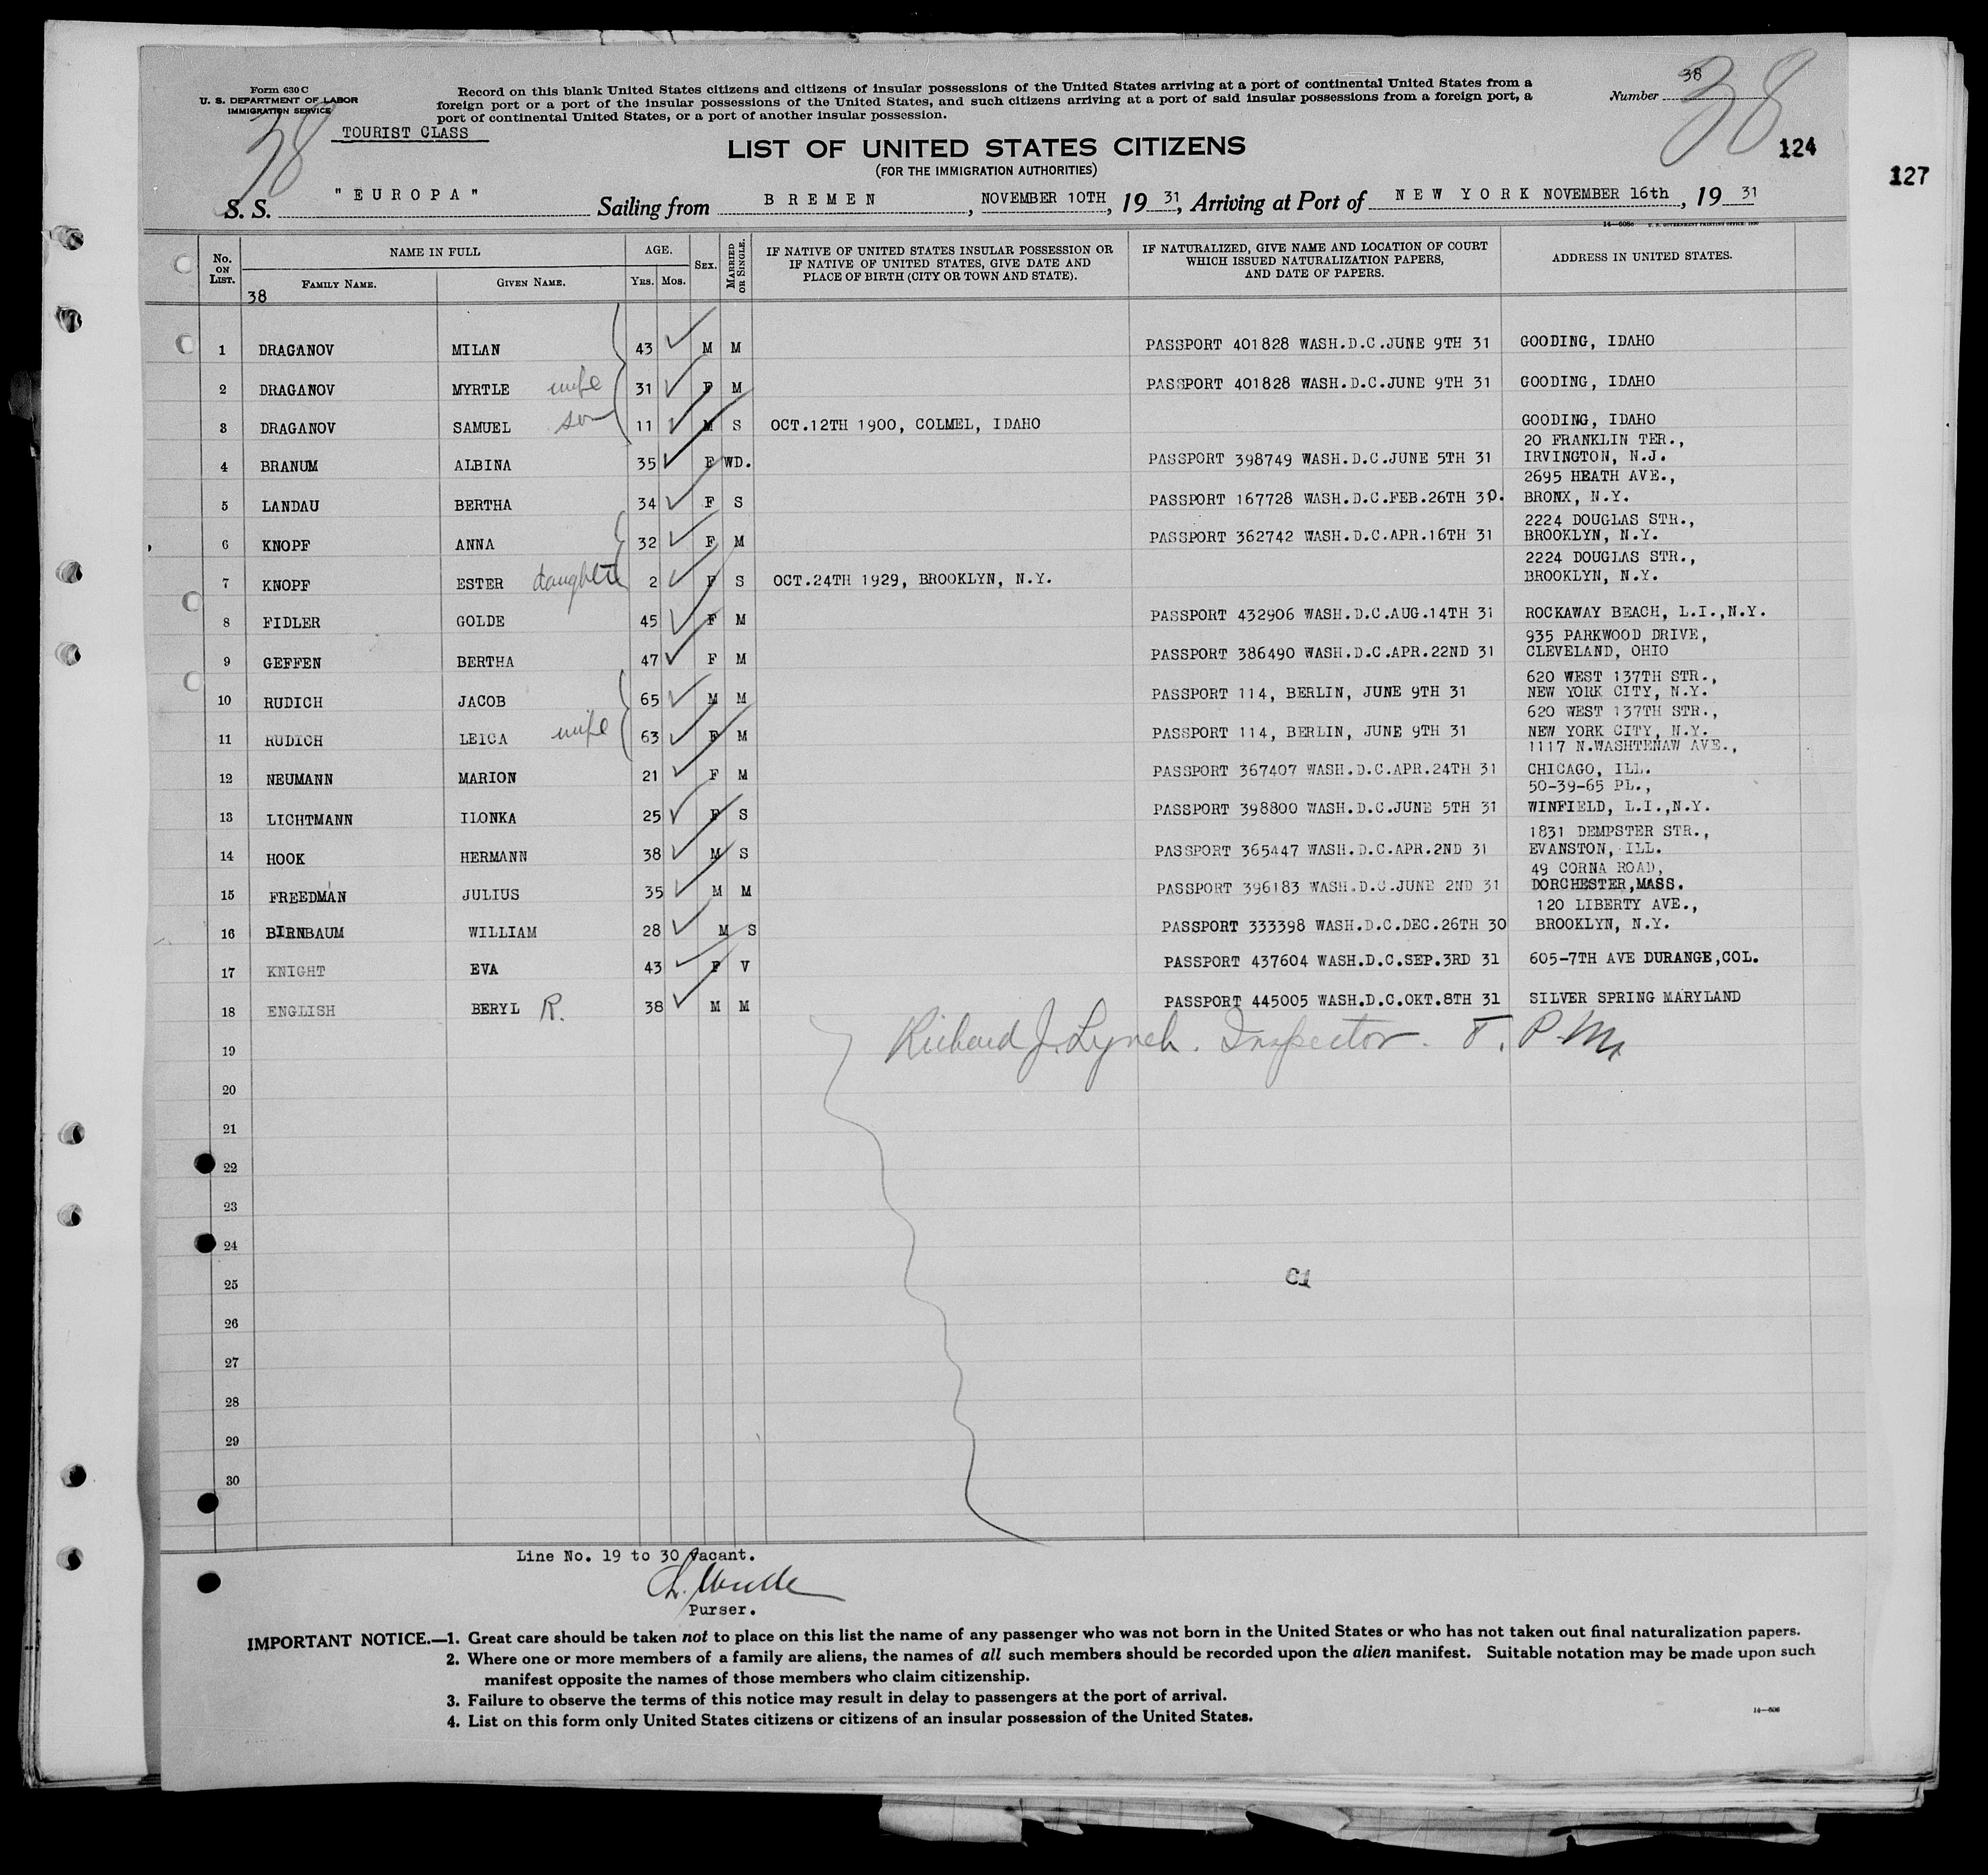 Form 630 C
U. S. DEPARTMENT OF LABOR
IMMIGRATION SERVICE
38
TOURIST CLASS
Record on this blank United States citizens and citizens of insular possessions of the United States arriving at a port of continental United States from a
foreign port or a port of the insular possessions of the United States, and such citizens arriving at a port of said insular possessions from a foreign port, a
port of continental United States, or a port of another insular possession.
Number 38
38
124
127
LIST OF UNITED STATES CITIZENS
(FOR THE IMMIGRATION AUTHORITIES)
S. S. "EUROPA" Sailing from BREMEN, NOVEMBER 10TH, 19 31, Arriving at Port of NEW YORK NOVEMBER 16th, 19 31
14—608c U. S. GOVERNMENT PRINTING OFFICE: 1930
No. ON LIST. NAME IN FULL AGE. SEX. MARRIED OR SINGLE. IF NATIVE OF UNITED STATES INSULAR POSSESSION OR IF NATIVE OF UNITED STATES, GIVE DATE AND PLACE OF BIRTH (CITY OR TOWN AND STATE). IF NATURALIZED, GIVE NAME AND LOCATION OF COURT WHICH ISSUED NATURALIZATION PAPERS, AND DATE OF PAPERS. ADDRESS IN UNITED STATES.
FAMILY NAME. GIVEN NAME. YRS. MOS.
38
1 DRAGANOV MILAN 43 M M PASSPORT 401828 WASH.D.C.JUNE 9TH 31 GOODING, IDAHO
2 DRAGANOV MYRTLE wife 31 F M PASSPORT 401828 WASH.D.C.JUNE 9TH 31 GOODING, IDAHO
3 DRAGANOV SAMUEL son 11 M S OCT.12TH 1900, COLMEL, IDAHO GOODING, IDAHO
20 FRANKLIN TER.,
4 BRANUM ALBINA 35 F WD. PASSPORT 398749 WASH.D.C.JUNE 5TH 31 IRVINGTON, N.J.
2695 HEATH AVE.,
5 LANDAU BERTHA 34 F S PASSPORT 167728 WASH.D.C.FEB.26TH 30. BRONX, N.Y.
2224 DOUGLAS STR.,
6 KNOPF ANNA 32 F M PASSPORT 362742 WASH.D.C.APR.16TH 31 BROOKLYN, N.Y.
2224 DOUGLAS STR.,
7 KNOPF ESTER daughter 2 F S OCT.24TH 1929, BROOKLYN, N.Y. BROOKLYN, N.Y.
8 FIDLER GOLDE 45 F M PASSPORT 432906 WASH.D.C.AUG.14TH 31 ROCKAWAY BEACH, L.I.,N.Y.
935 PARKWOOD DRIVE,
9 GEFFEN BERTHA 47 F M PASSPORT 386490 WASH.D.C.APR.22ND 31 CLEVELAND, OHIO
620 WEST 137TH STR.,
10 RUDICH JACOB 65 M M PASSPORT 114, BERLIN, JUNE 9TH 31 NEW YORK CITY, N.Y.
620 WEST 137TH STR.,
11 RUDICH LEICA wife 63 F M PASSPORT 114, BERLIN, JUNE 9TH 31 NEW YORK CITY, N.Y.
1117 N.WASHTENAW AVE.,
12 NEUMANN MARION 21 F M PASSPORT 367407 WASH.D.C.APR.24TH 31 CHICAGO, ILL.
50-39-65 PL.,
13 LICHTMANN ILONKA 25 F S PASSPORT 398800 WASH.D.C.JUNE 5TH 31 WINFIELD, L.I.,N.Y.
1831 DEMPSTER STR.,
14 HOOK HERMANN 38 M S PASSPORT 365447 WASH.D.C.APR.2ND 31 EVANSTON, ILL.
49 CORNA ROAD,
15 FREEDMAN JULIUS 35 M M PASSPORT 396183 WASH.D.C.JUNE 2ND 31 DORCHESTER,MASS.
120 LIBERTY AVE.,
16 BIRNBAUM WILLIAM 28 M S PASSPORT 333398 WASH.D.C.DEC.26TH 30 BROOKLYN, N.Y.
17 KNIGHT EVA 43 F V PASSPORT 437604 WASH.D.C.SEP.3RD 31 605-7TH AVE DURANGE,COL.
18 ENGLISH BERYL R. 38 M M PASSPORT 445005 WASH.D.C.OKT.8TH 31 SILVER SPRING MARYLAND
19 Richard J. Lynch. Inspector. T. P. M.
20
21
22
23
24
25 C1
26
27
28
29
30
Line No. 19 to 30 Vacant.
Purser.
IMPORTANT NOTICE.—1. Great care should be taken not to place on this list the name of any passenger who was not born in the United States or who has not taken out final naturalization papers.
2. Where one or more members of a family are aliens, the names of all such members should be recorded upon the alien manifest. Suitable notation may be made upon such
manifest opposite the names of those members who claim citizenship.
3. Failure to observe the terms of this notice may result in delay to passengers at the port of arrival.
4. List on this form only United States citizens or citizens of an insular possession of the United States.
14—608